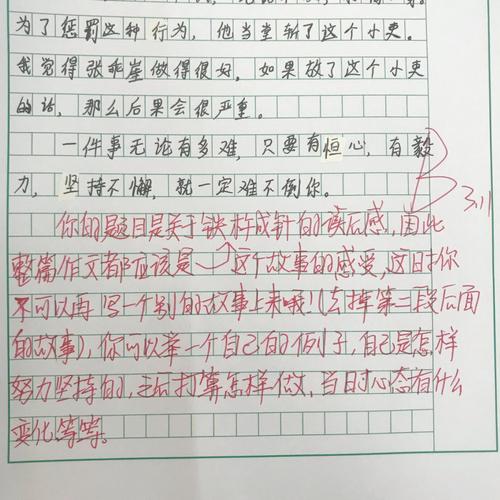 为了惩罚这种行为，他当堂斩了这个小吏。
我觉得张乖崖做得很好，如果放了这个小吏
的话，那么后果会很严重。
一件事无论有多难，只要有恒心，有毅
力，坚持不懈，就一定难不倒你。
B
3.11
你的题目是关于铁杵成针的读后感，因此
整篇作文都应该是这个故事的感受，这时你
不可以再写一个别的故事上来哦！（去掉第二段后面
的故事），你可以举一个自己的例子，自己是怎样
努力坚持的，之后打算怎样做，当时心态有什么
变化等等。